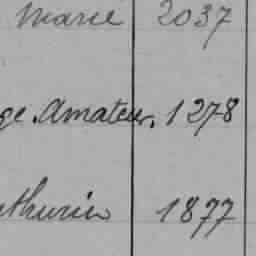 Marie 2037
ge Amateur. 1278
thurin 1877